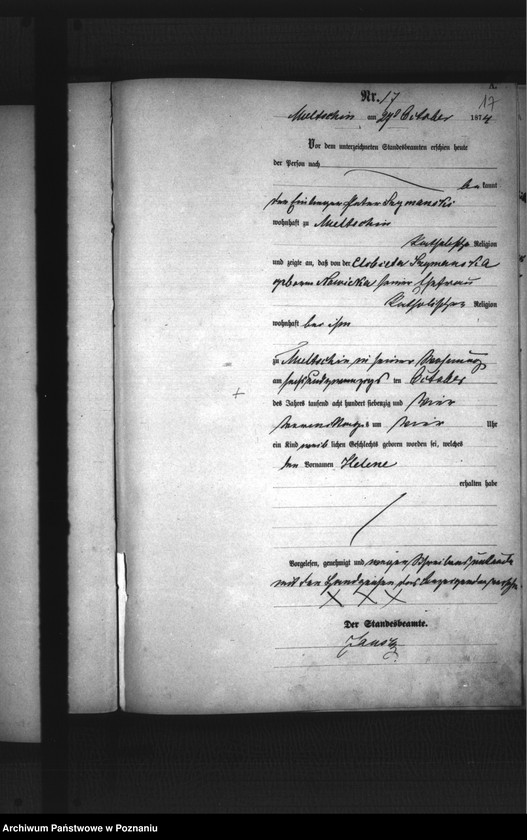 A.
Nr. 17
17
Meltschin am 29 October 1874
Vor dem unterzeichneten Standesbeamten erschien heute
der Person nach
bekannt
der Peter Szymanski
wohnhaft zu Meltschin
Katholischer Religion
und zeigte an, daß von der Elsbieta Szymanska
geboren Nowicka seiner Ehefrau
Katholischer Religion
wohnhaft bei ihm
zu Meltschin in seiner Wohnung
am sechsundzwanzigs ten October
des Jahrs tausend acht hundert siebenzig und vier
Vormittags um vier Uhr
ein Kind weiblichen Geschlechts geboren worden sei, welches
den Vornamen Helene
erhalten habe
Vorgelesen, genehmigt und wegen Schreibensunkunde
mit den Handzeichen des Anzeigenden versehen
XXX
Der Standesbeamte.
Archiwum Państwowe w Poznaniu